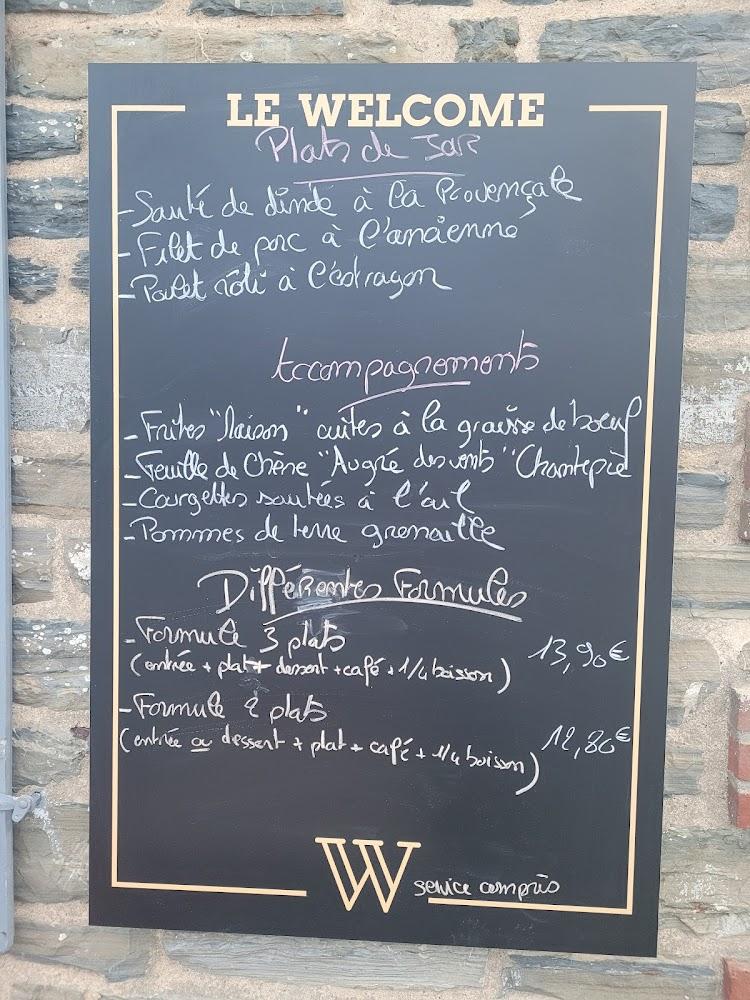 LE WELCOME
Plats du Jour
- Sauté de dinde à la Provençale
- Filet de porc à l'ancienne
- Poulet rôti à l'estragon
Accompagnements
- Frites "Maison" cuites à la graisse de boeuf
- Feuille de Chêne "Au gré des vents" Chantepie
- Courgettes sautées à l'ail
- Pommes de terre grenaille
Différentes Formules
- Formule 3 plats 13,90€
(entrée + plat + dessert + café + 1/4 boisson)
- Formule 2 plats 12,80€
(entrée ou dessert + plat + café + 1/4 boisson)
W service compris